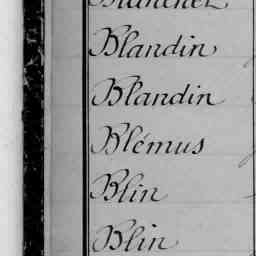 Blanchet
Blandin
Blandin
Blémus
Blin
Blin